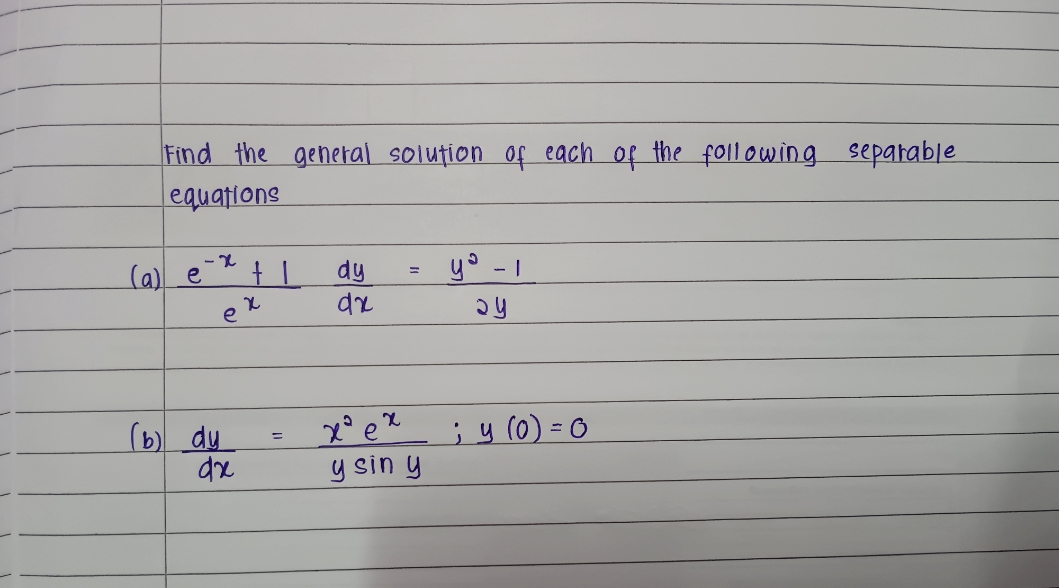 Find the general solution of each of the following separable
equations
(a) (e^{-x} + 1)/(e^x) dy/dx = (y² - 1)/(2y)
(b) dy/dx = (x² e^x)/(y sin y) ; y (0) = 0